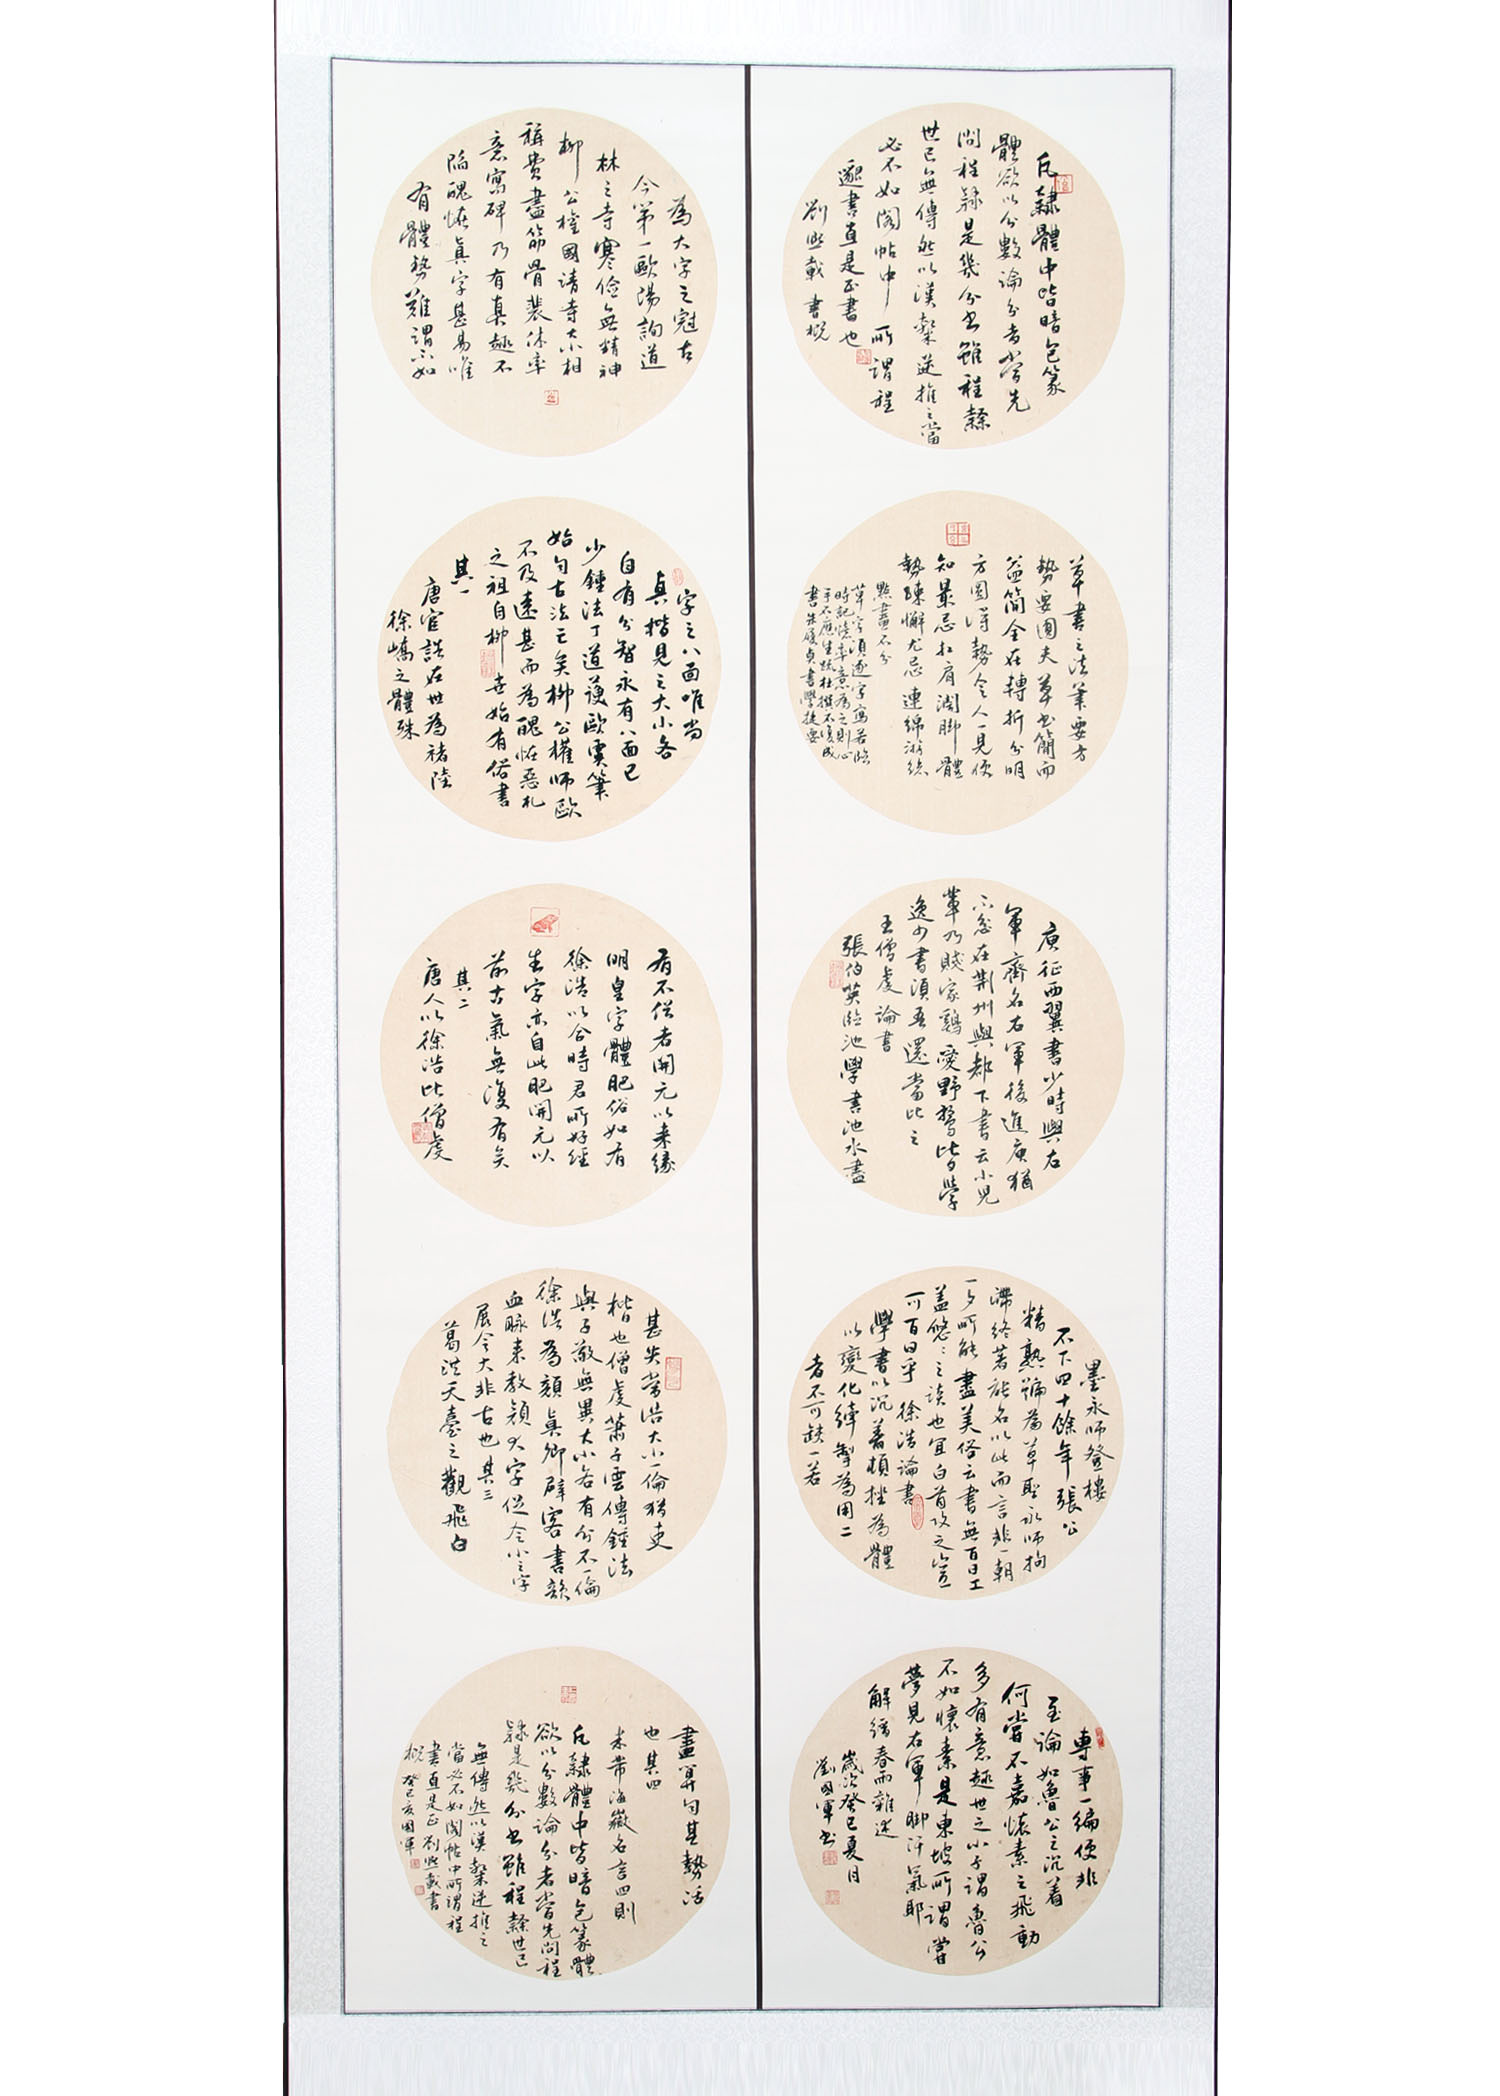 凡隸體中皆暗包篆
體欲以分數論分者當先
問程隸是幾分書雖程隸
世已無傳然以漢隸逆推之當
必不如閣帖中所謂程
邈書直是正書也
劉熙載書概
草書之法筆要方
勢要圓夫草書簡而
益簡全在轉折分明
方圓得勢令人一見便
知最忌扛肩闊腳體
勢疎懈尤忌連綿游絲
點畫不分
草字須逐字寫若臨
時記憶率意為之則心
手不應生疏杜撰不復成
書朱履貞書學捷要
庾征西翼書少時與右
軍齊名右軍後進庾猶
不忿在荆州與都下書云小兒
輩乃賤家雞愛野鶩皆學
逸少書須吾還當比之
王僧虔論書
張伯英臨池學書池水盡
墨永師登樓
不下四十餘年張公
精熟號為草聖永師拘
滯終著能名以此而言非一朝
一夕所能盡美俗云書無百日工
蓋悠悠之談也宜白首攻之豈
可百日乎徐浩論書
學書以沉著頓挫為體
以變化牽掣為用二
者不可缺一若
專事一偏便非
至論如魯公之沉着
何嘗不嘉懷素之飛動
多有意趣世之小子謂魯公
不如懷素是東坡所謂嘗
夢見右軍脚汗氣耶
解縉春雨雜述
歲次癸巳夏月
劉國軍書
為大字之冠古
今第一歐陽詢道
林之寺寒儉無精神
柳公權國清寺大小相
稱費盡筋骨裴休率
意寫碑乃有真趣不
陷醜怪真字甚易唯
有體勢難謂不如
字之八面唯尚
真楷見之大小各
自有分智永有八面已
少鍾法丁道護歐虞筆
始勻古法亡矣柳公權師歐
不及遠甚而為醜怪惡札
之祖自柳世始有俗書
其一
唐官誥在世為褚陸
徐嶠之體殊
有不俗者開元以來緣
明皇字體肥俗如有
徐浩以合時君所好經
生字亦自此肥開元以
前古氣無復有矣
其二
唐人以徐浩比僧虔
甚失當浩大小一倫猶吏
楷也僧虔蕭子雲傳鍾法
與子敬無異大小各有分不一倫
徐浩為顏真卿辟客書韻
血脉來教顏大字促令小小字
展令大非古也其三
葛洪天臺之觀飛白
畫算勻其勢活
也其四
米芾海嶽名言四則
凡隸體中皆暗包篆體
欲以分數論分者當先問程
隸是幾分書雖程隸世已
無傳然以漢隸逆推之
當必不如閣帖中所謂程
書直是正劉熙載書
概癸巳亥國軍